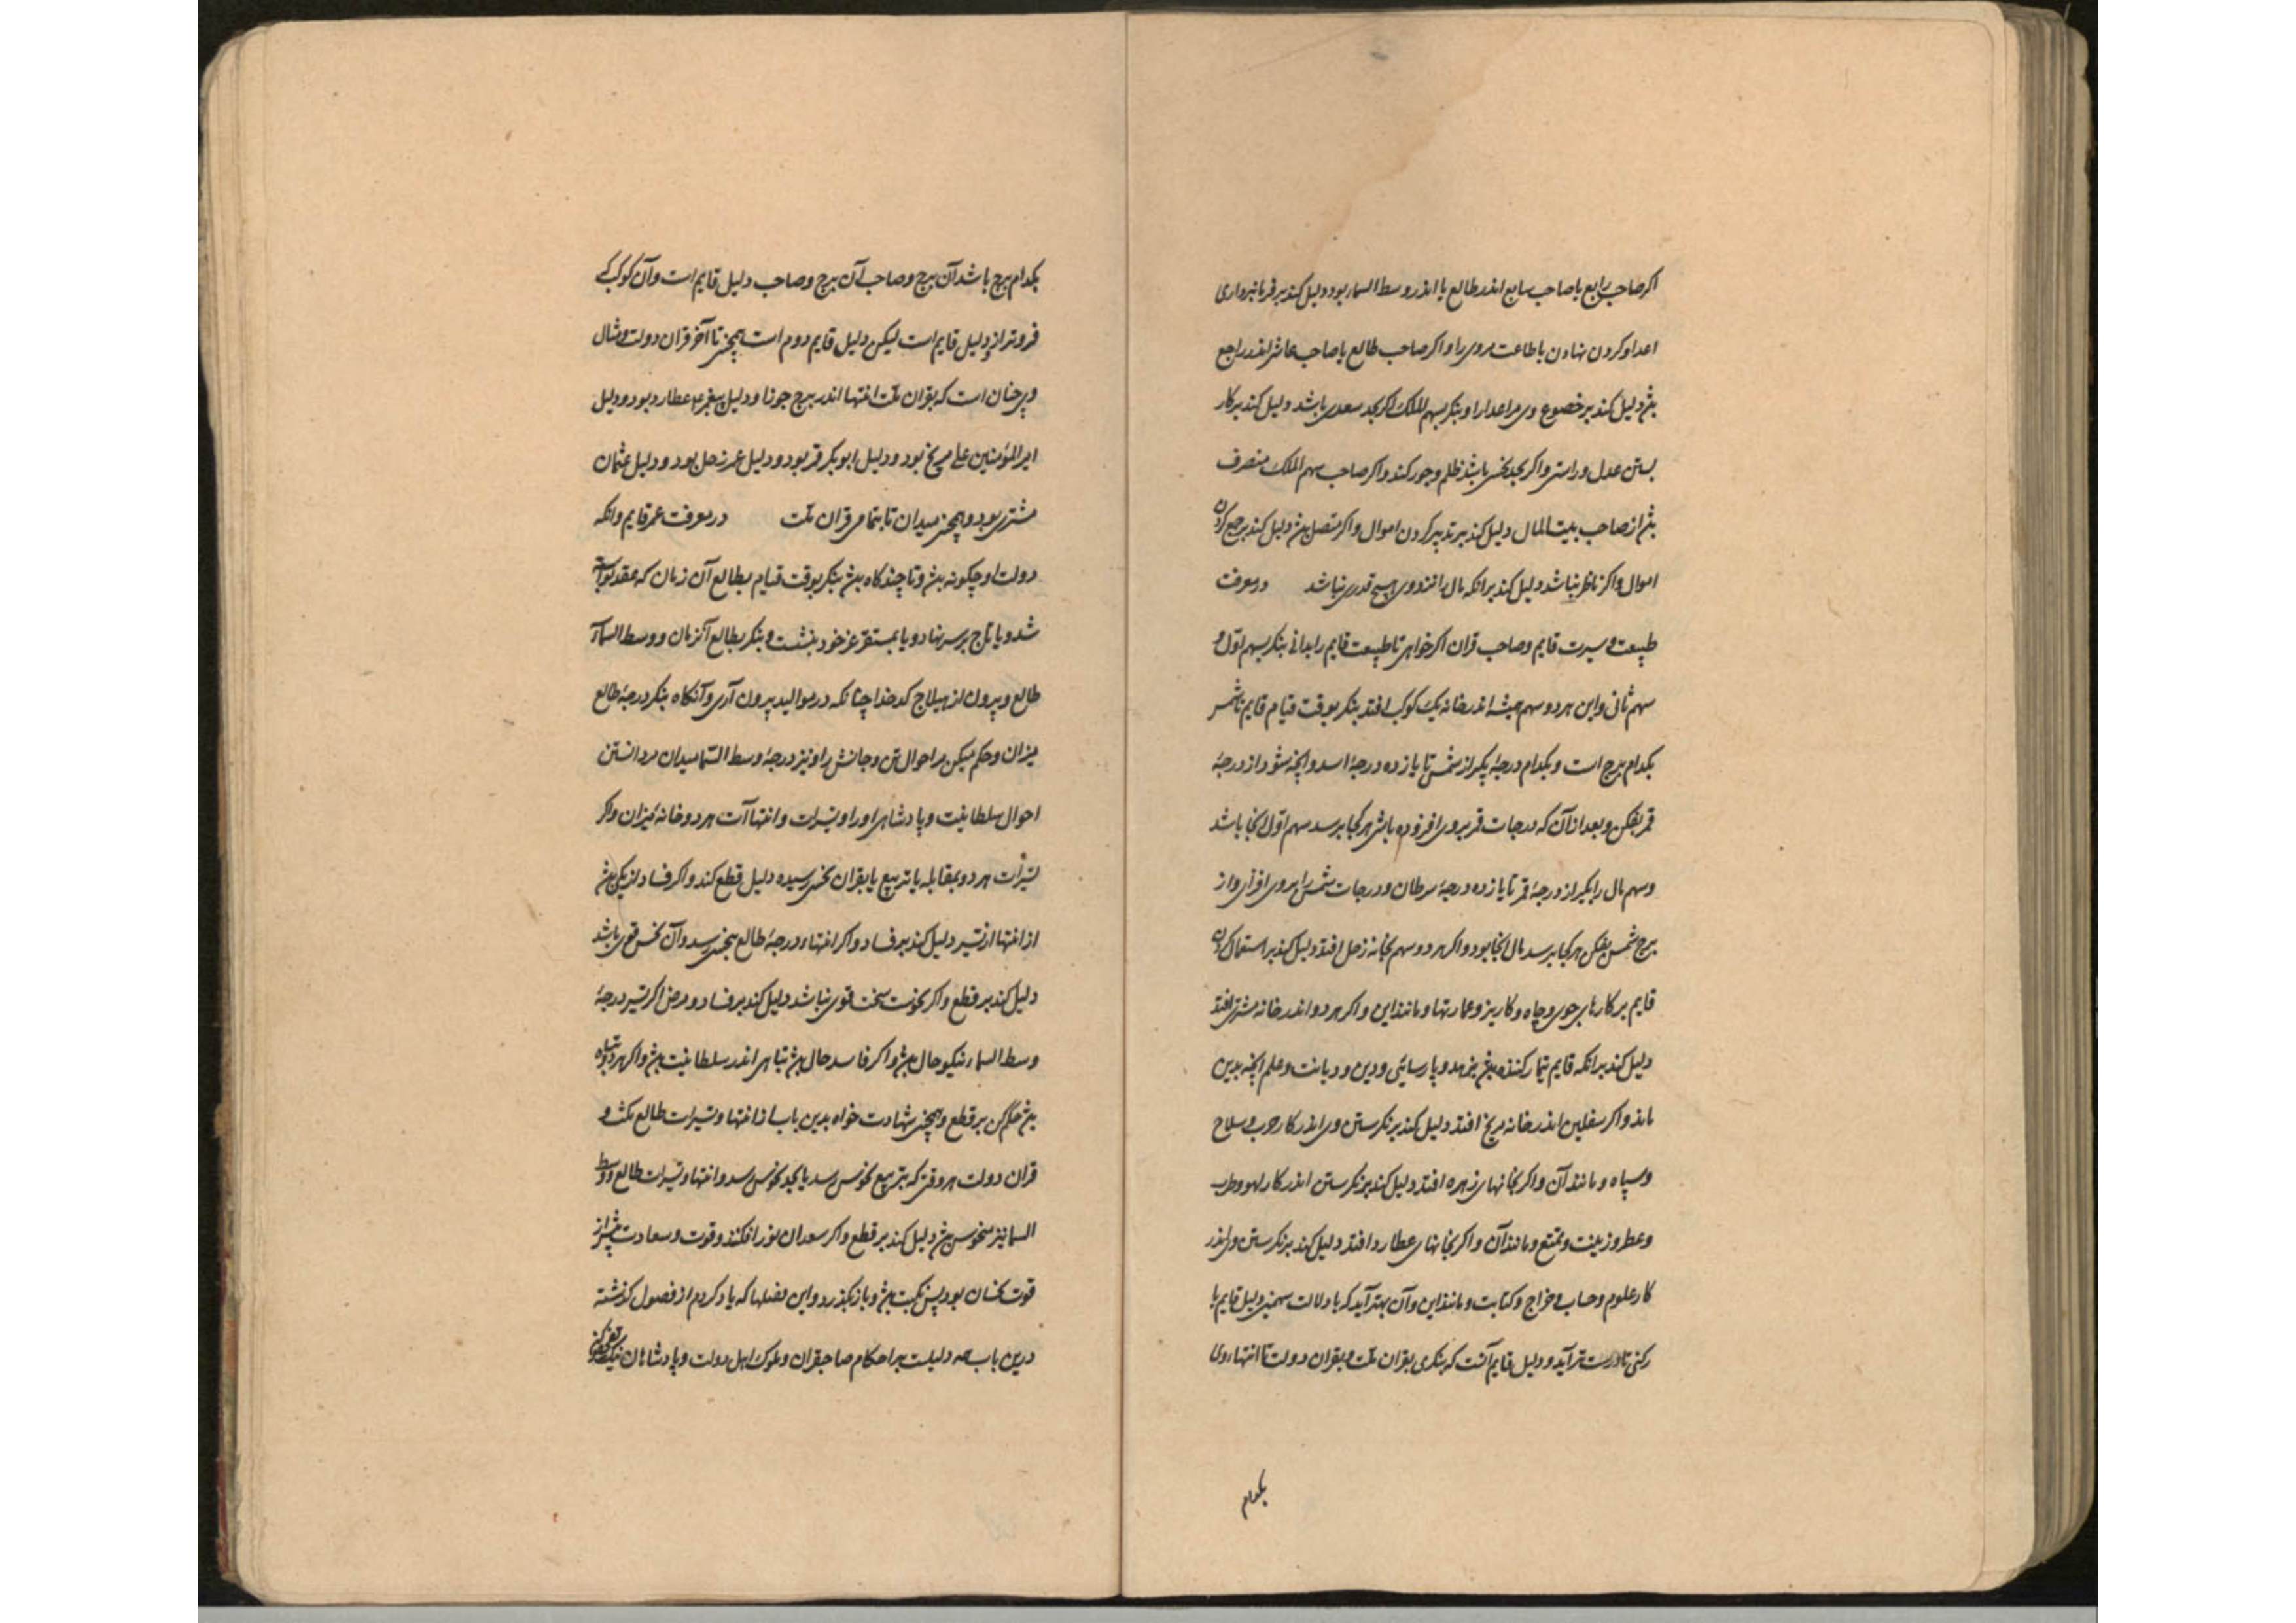 اکر صاحب رابع یا صاحب سابع اندر طالع یا اندر وسط السمار بود دلیل کند بر فرمانبرداری
اعدا و کردن نهادن باطاعت مروی را و اکر صاحب طالع یا صاحب عاشر اندر راجع
بیش دلیل کند بر خضوع وی مر اعدا را و بنکر بسهم الملک اکر بحد سعدی باشد دلیل کند بر کار
بستن عدل و راستی و اکر بحد نحس باشد ظلم و جور کند و اکر صاحب سهم الملک منصرف
بیش از صاحب بیت المال دلیل کند بر تدبیر کردن اموال و اکر متصل بیش دلیل کند بر جمع کردن
اموال و اکر ناظر نباشد دلیل کند برانکه مال را نزد وی هیچ قدری نباشد در معرفت
طبیعت و سیرت قایم و صاحب قران اکر خواهی تا طبیعت قایم را بدانی بنکر بسهم اوّل و
سهم ثانی و این هر دو سهم همیشه اندر خانه یک کوکب افتد بنکر بوقت قیام قایم تا شمس
بکدام برج است و بکدام درجهٔ بکیر از شمس تا یازده درجهٔ اسد و انچه شود از درجهٔ
قمر بفکن و بعد از آن که درجات قمر بر وی افزوده باشی هر کجا برسد سهم اوّل انجا باشد
و سهم مال را بکیر از درجهٔ قمر تا یازده درجهٔ سرطان و درجات شمس را بر وی افزای و از
برج شمس بفکن هر کجا برسد مال انجا بود و اکر هر دو سهم بخانه زحل افتد دلیل کند بر استعمال کردن
قایم بر کارهای جوی و چاه و کاریز و عمارتها و مانند این و اکر هر دو اندر خانه مشتری افتد
دلیل کند برانکه قایم تیمار کننده بیش بزهد و پارسائی و دین و دیانت و علم انچه بدین
ماند و اکر سفلین اندر خانه مریخ افتد دلیل کند بر نکرستن وی اندر کار حرب و سلاح
و سپاه و مانند آن و اکر بخانهای زهره افتد دلیل کند بر نکرستن اندر کار لهو و طرب
و عطر و زینت و تمتع و مانند آن و اکر بخانهای عطارد افتد دلیل کند بر نکرستن وی اندر
کار علوم و حساب و خراج و کتابت و مانند این و آن بهتر آید که با دلالت سهمین دلیل قایم یا
رکنی تا درست تر آید و دلیل قایم آنست که بنکری بقران ملت و بقران دولت تا انتها روی
بکدام
بکدام برج باشد آن برج و صاحب آن برج و صاحب دلیل قایم است و آن کوکب که
فروتر از دلیل قایم است لیکن دلیل قایم دوم است همچنین تا آخر قران دولت و مثال
وی چنان است که بقران ملت انتها اندر برج جوزا و دلیل پیغمبر عطارد بود و دلیل
امیر المؤمنین علی مریخ بود و دلیل ابوبکر قمر بود و دلیل عمر زحل بود و دلیل عثمان
مشتری بود و همچنین میدان تا بتمامی قران ملت در معرفت عمر قایم و انکه
دولت او چکونه بیش و تا چند کاه بیش بنکر بوقت قیام بطالع آن زمان که عقد لوا بسته
شد و یا تاج بر سر نهاد و یا بمستقر عز خود بنشست و بنکر بطالع آن زمان و وسط السماء
طالع و بیرون از هیلاج کدخدا چنانکه در موالید بیرون آری و آنکاه بنکر درجهٔ طالع
میزان و حکم میکن بر احوال تن و جانش را و نیز درجهٔ وسط السما میدان مر دانستن
احوال سلطانیت و پادشاهی او را و تسیرات و انتها آت هر دو خانه میزان و اکر
تسیرات هر دو بمقابله یا تربیع یا بقران نحس رسیده دلیل قطع کند و اکر فساد از یکی بیش
از انتها از تسیر دلیل کند بر فساد و اکر انتهاء درجهٔ طالع بنحسی رسد و آن نحس قوی باشد
دلیل کند بر قطع و اکر نحوست سخت قوی نباشد دلیل کند بر فساد و مرض اکر تسیر درجهٔ
وسط السماء نیکو حال بیش و اکر فاسد حال بیش تباهی اندر سلطانیت بیش و اکر هر دو تباه
بیش حکم کن بر قطع و همچنین شهادت خواه بدین باب از انتها و تسیرات طالع ملت و
قران دولت هر وقتی که بتربیع نحوس رسد یا بحد نحوس رسد و انتها و تسیرات طالع و وسط
السما نیز منحوس بیش دلیل کند بر قطع و اکر سعدان نور افکنند و قوت و سعادت بیش از
قوت نحسان بود پس نکبت بیش و باز بکذرد و این فصلها که یاد کردم از فصول کذشته
درین باب همه دلیلست بر احکام صاحبقران و ملوک اهل دولت و پادشاهان